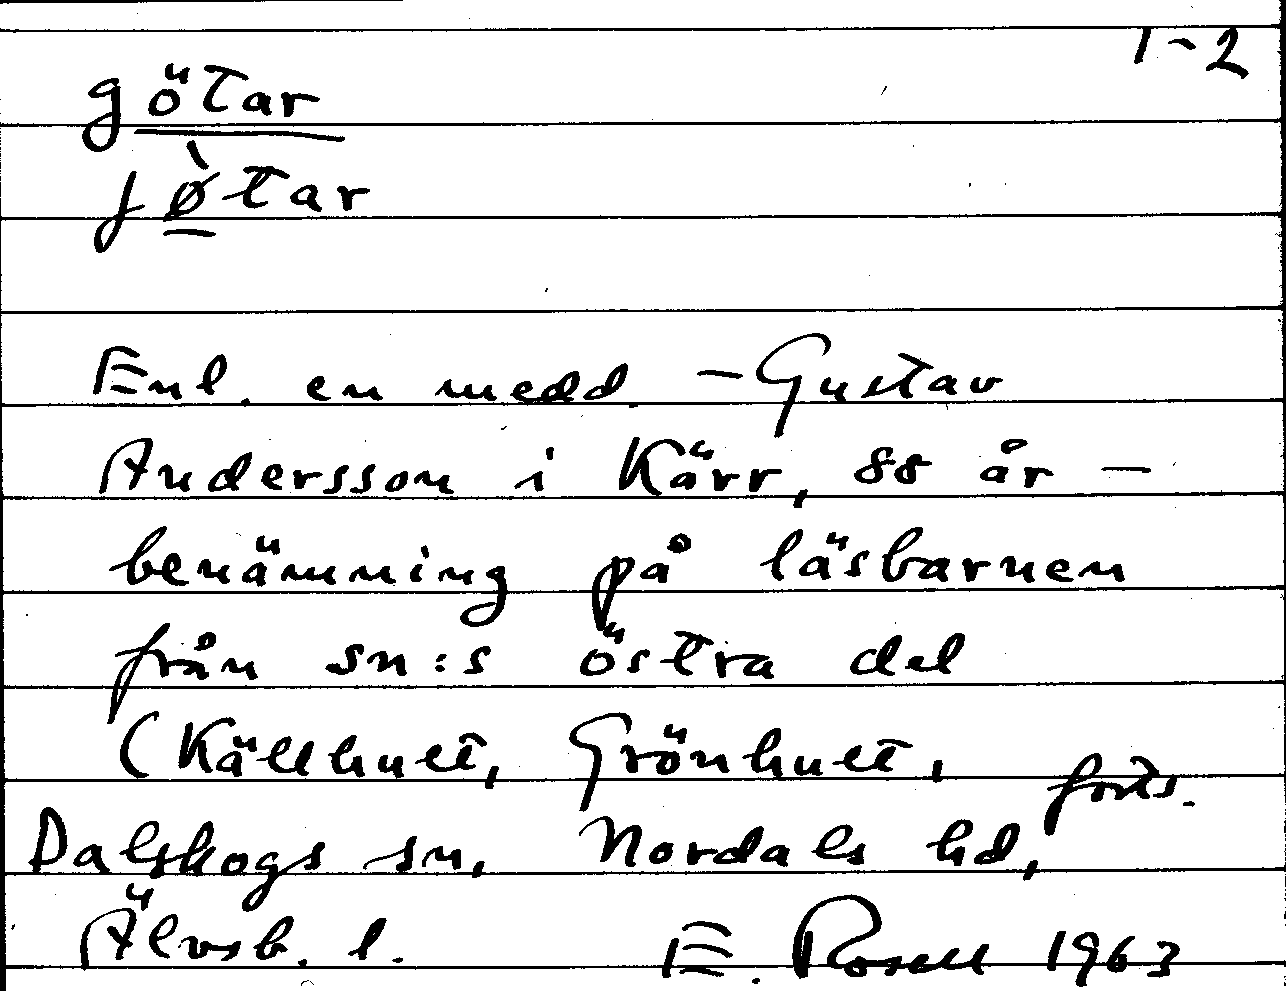 1-2
götar
jø̀tar
Enl. en medd. - Gustav
Andersson i Kärr, 88 år -
benämning på läsbarnen
från sn:s östra del
(Källhult, Grönhult,
forts.
Dalskogs sn, Nordals hd,
Älvsb. l. E. Rosell 1963